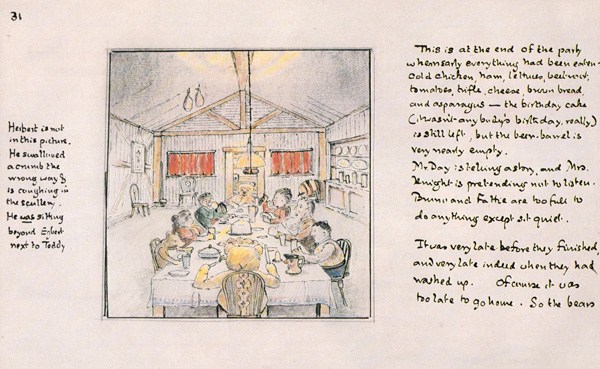 31
Herbert is not
in this picture.
He swallowed
a crumb the
wrong way &
is coughing in
the scullery.
He was sitting
beyond Egbert
next to Teddy
This is at the end of the party
when nearly everything had been eaten -
cold chicken, ham, lettuces, beetroot,
tomatoes, trifle, cheese, brown bread,
and asparagus — the birthday cake
(it wasn't anybody's birthday, really)
is still left, but the beer-barrel is
very nearly empty.
Mr. Day is telling a story, and Mrs.
Knight is pretending not to listen.
Bruni and Fattie are too full to
do anything except sit quiet.
It was very late before they finished,
and very late indeed when they had
washed up. Of course it was
too late to go home. So the bears